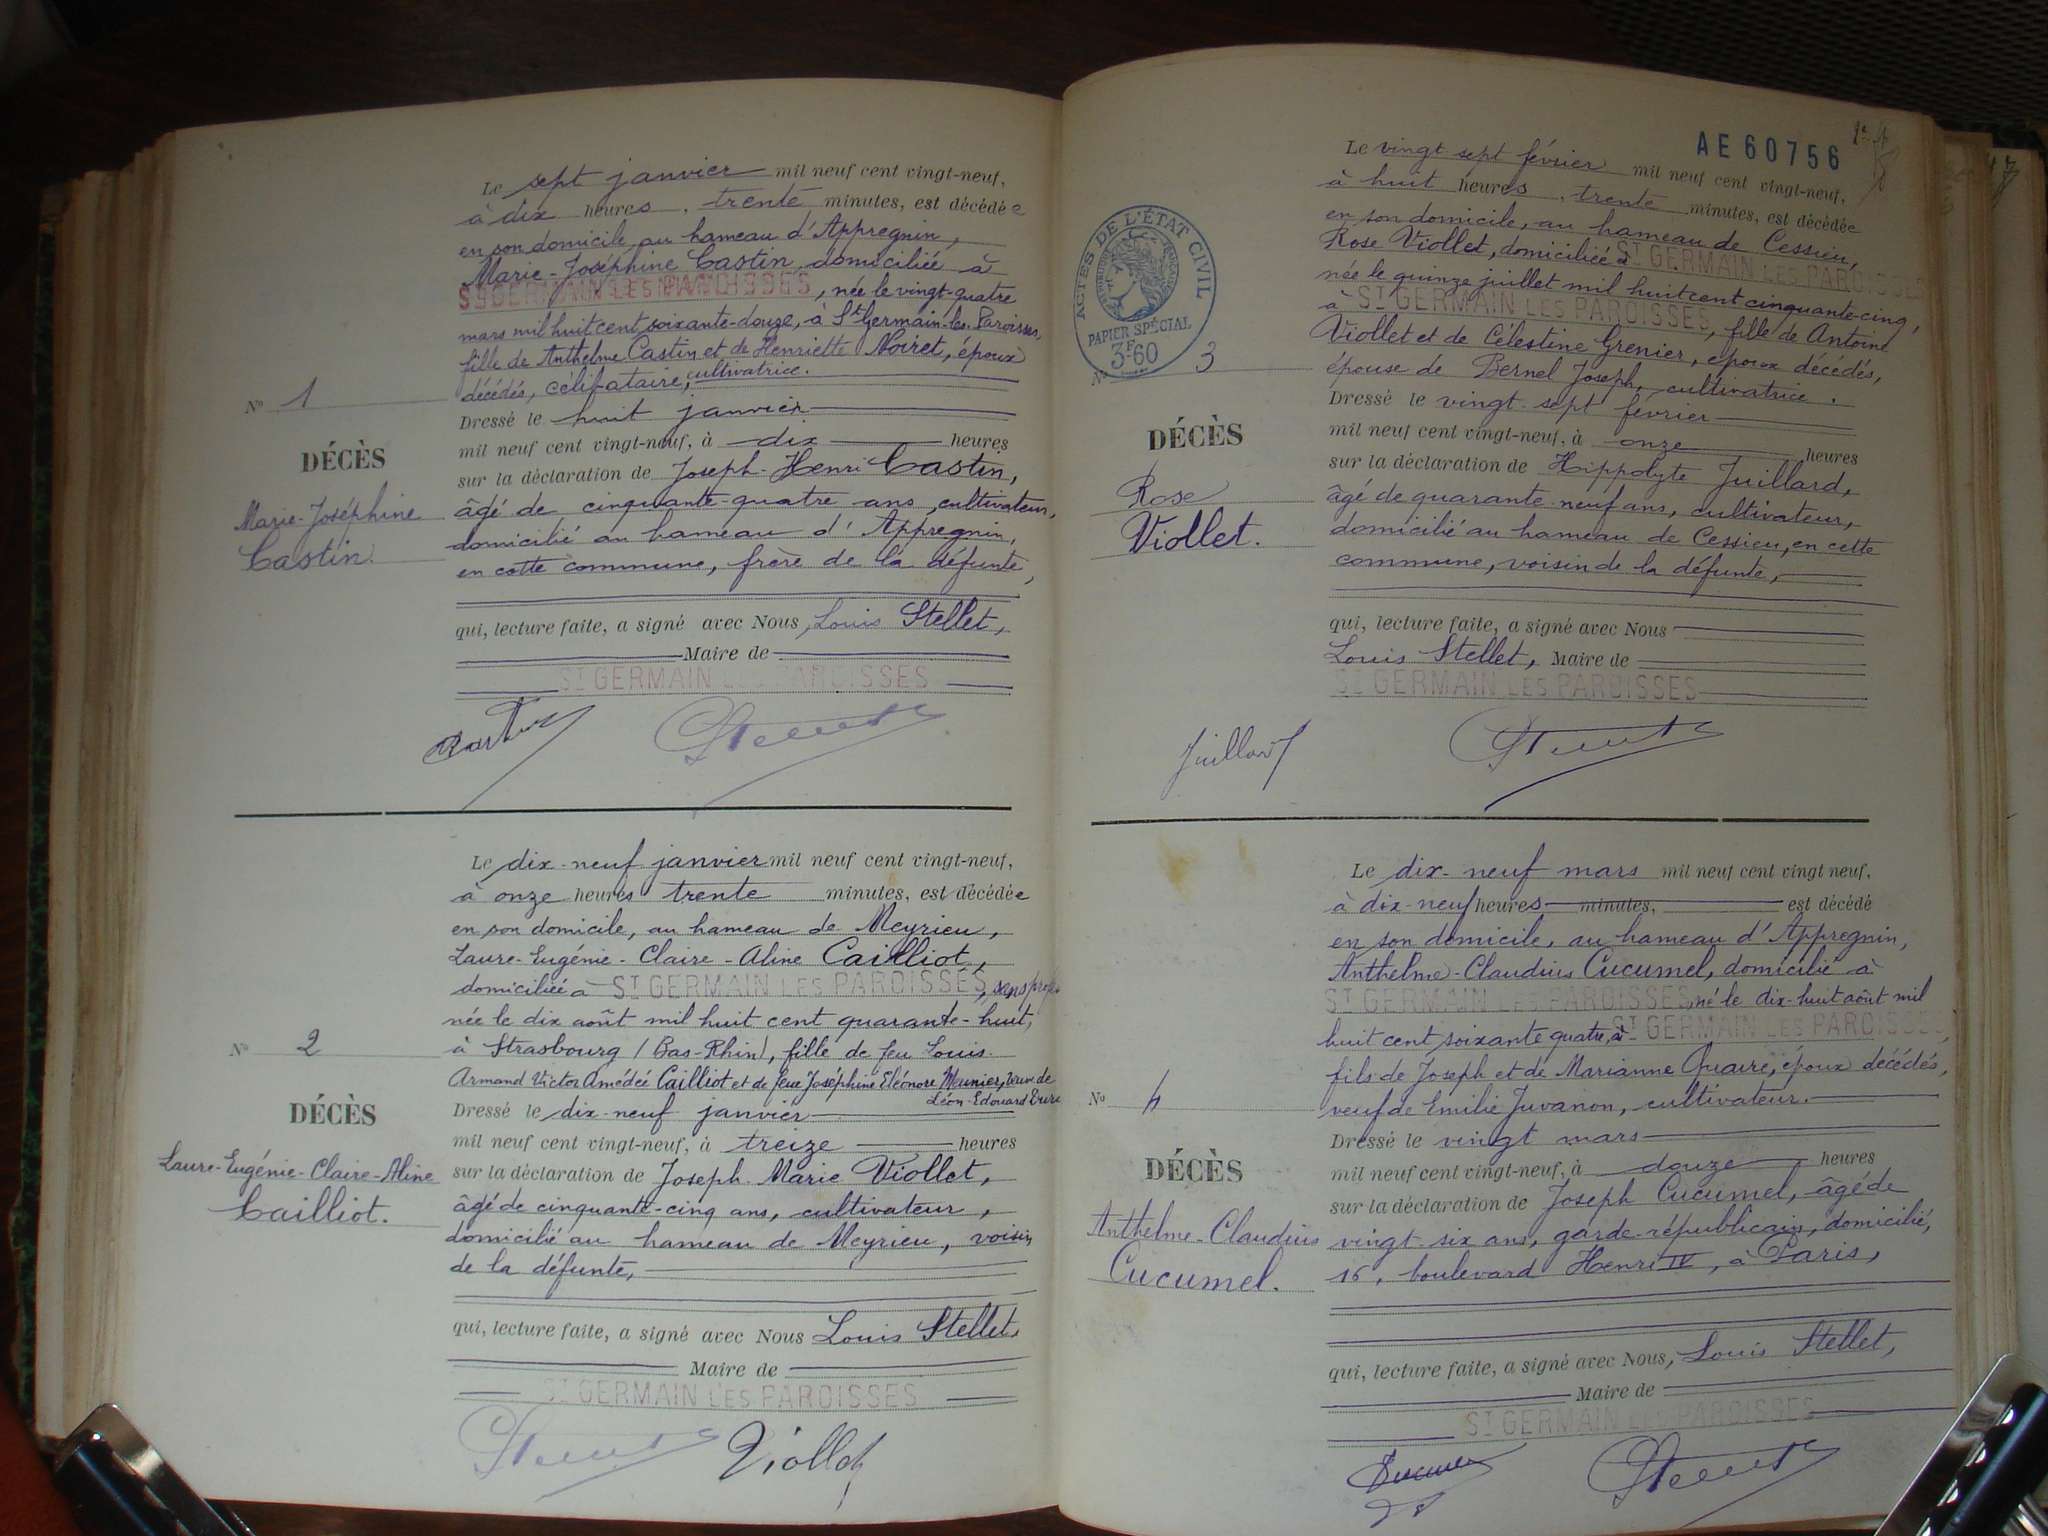 Le sept janvier mil neuf cent vingt-neuf,
à dix heures, trente minutes, est décédée
en son domicile, au hameau d'Appregnin,
Marie-Joséphine Castin, domiciliée à
ST GERMAIN LES PAROISSES, née le vingt-quatre
mars mil huit cent soixante-douze, à St Germain-les-Paroisses,
fille de Anthelme Castin et de Henriette Noiret, époux
décédés, célibataire, cultivatrice.
N° 1
DÉCÈS
Marie-Joséphine
Castin.
Dressé le huit janvier
mil neuf cent vingt-neuf, à dix heures
sur la déclaration de Joseph-Henri Castin,
âgé de cinquante-quatre ans, cultivateur,
domicilié au hameau d'Appregnin,
en cette commune, frère de la défunte,
qui, lecture faite, a signé avec Nous, Louis Stellet,
Maire de
ST GERMAIN LES PAROISSES
Le dix-neuf janvier mil neuf cent vingt-neuf,
à onze heures trente minutes, est décédée
en son domicile, au hameau de Meyrieu,
Laure-Eugénie-Claire-Aline Cailliot,
domiciliée à ST GERMAIN LES PAROISSES, sans
née le dix août mil huit cent quarante-huit,
à Strasbourg (Bas-Rhin), fille de feu Louis
Armand Victor Amédée Cailliot et de feue Joséphine Eléonore Meunier, veuve de
Léon-Edouard
N° 2
DÉCÈS
Laure-Eugénie-Claire-Aline
Cailliot.
Dressé le dix-neuf janvier
mil neuf cent vingt-neuf, à treize heures
sur la déclaration de Joseph-Marie Viollet,
âgé de cinquante-cinq ans, cultivateur,
domicilié au hameau de Meyrieu, voisin
de la défunte,
qui, lecture faite, a signé avec Nous Louis Stellet,
Maire de
ST GERMAIN LES PAROISSES
Viollet
AE 60756
ACTES DE L'ÉTAT CIVIL
PAPIER SPÉCIAL
3F60
Le vingt sept février mil neuf cent vingt-neuf,
à huit heures, trente minutes, est décédée
en son domicile, au hameau de Cessieu,
Rose Viollet, domiciliée à ST GERMAIN LES PAROISSES
née le quinze juillet mil huit cent cinquante-cinq,
à ST GERMAIN LES PAROISSES, fille de Antoine
Viollet et de Célestine Grenier, époux décédés,
épouse de Bernel Joseph, cultivatrice.
N° 3
DÉCÈS
Rose
Viollet.
Dressé le vingt-sept février
mil neuf cent vingt-neuf, à onze heures
sur la déclaration de Hippolyte Juillard,
âgé de quarante-neuf ans, cultivateur,
domicilié au hameau de Cessieu, en cette
commune, voisin de la défunte,
qui, lecture faite, a signé avec Nous
Louis Stellet, Maire de
ST GERMAIN LES PAROISSES
Juillard
Le dix-neuf mars mil neuf cent vingt neuf,
à dix-neuf heures minutes, est décédé
en son domicile, au hameau d'Appregnin,
Anthelme-Claudius Cucumel, domicilié à
ST GERMAIN LES PAROISSES, né le dix-huit août mil
huit cent soixante quatre, à ST GERMAIN LES PAROISSES,
fils de Joseph et de Marianne Quaire, époux décédés,
veuf de Emilie Juvanon, cultivateur.
N° 4
DÉCÈS
Anthelme-Claudius
Cucumel.
Dressé le vingt mars
mil neuf cent vingt-neuf, à douze heures
sur la déclaration de Joseph Cucumel, âgé de
vingt-six ans, garde-républicain, domicilié,
16, boulevard Henri IV, à Paris,
qui, lecture faite, a signé avec Nous, Louis Stellet,
Maire de
ST GERMAIN LES PAROISSES